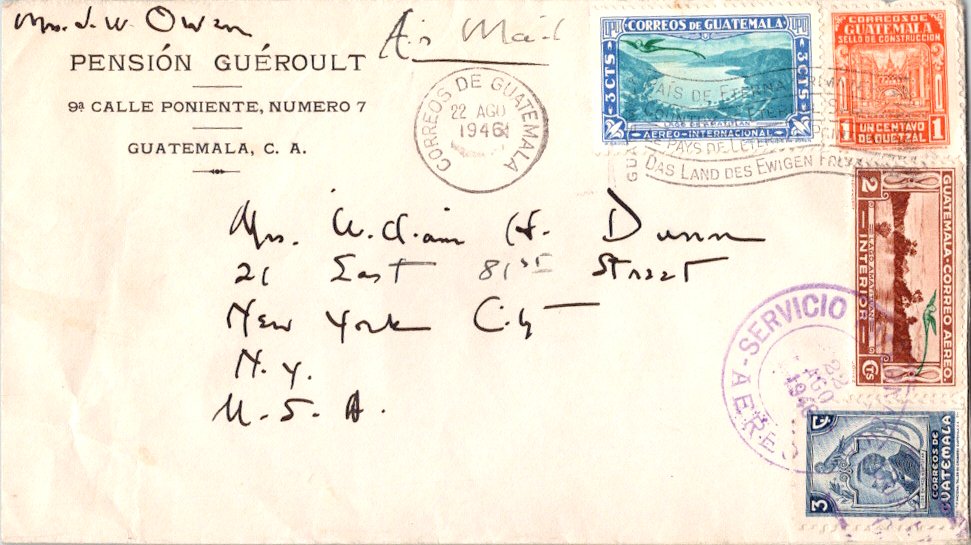 Mrs. J. W. Owen
Air Mail
PENSIÓN GUÉROULT
9ª CALLE PONIENTE, NUMERO 7
GUATEMALA, C. A.
CORREOS DE GUATEMALA
22 AGO
1946
CORREOS DE GUATEMALA
3 CTS
3 CTS
AEREO-INTERNACIONAL
CORREOS DE
GUATEMALA
SELLO DE CONSTRUCCION
1 UN CENTAVO 1
DE QUETZAL
PAIS DE ETERNA
COUNTRY OF ETERNAL
PAYS DE L'ETERNEL
DAS LAND DES EWIGEN
Mrs. William H. Dunn
21 East 81st Street
New York City
N. Y.
U. S. A.
GUATEMALA-CORREO AEREO.
2 INTERIOR Cts
SERVICIO
AEREO
22
AGO
1946
3 ₵
CORREOS DE
GUATEMALA